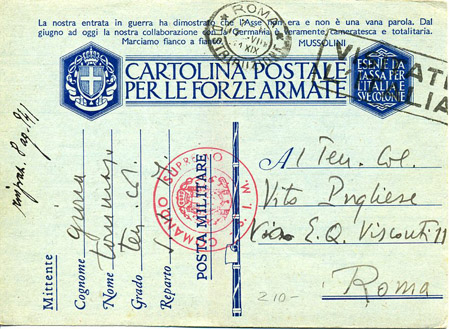 La nostra entrata in guerra ha dimostrato che l'Asse non era e non è una vana parola. Dal
giugno ad oggi la nostra collaborazione con la Germania è veramente cameratesca e totalitaria.
Marciamo fianco a fianco.
MUSSOLINI
ROMA
XIX
CARTOLINA POSTALE
PER LE FORZE ARMATE
ESENTE DA
TASSA PER
L'ITALIA E
SUE COLONIE
Al Ten. Col.
Vito Pugliese
Via E. Q. Visconti 11
Roma
210-
COMANDO SUPREMO
POSTA MILITARE
Mittente
Cognome
Nome Tommaso
Grado ten. col.
Reparto